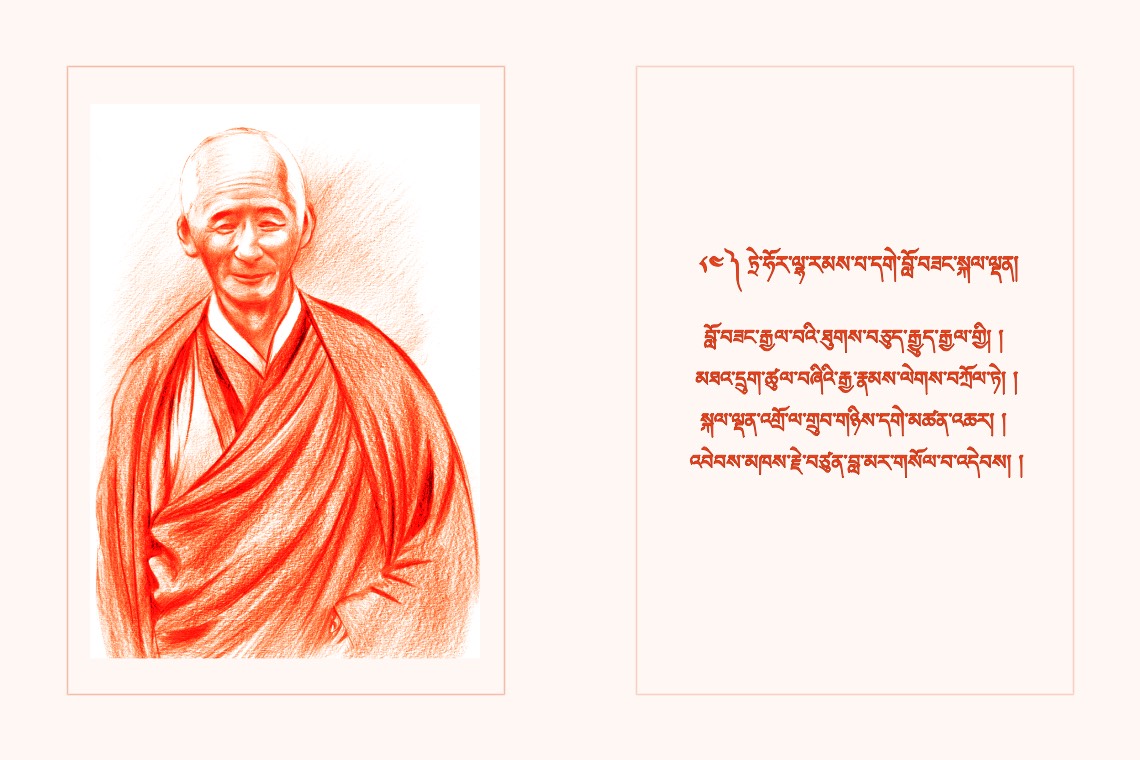 ༼༧༽ ཏྲེ་ཧོར་ལྷ་རམས་པ་དགེ་བློ་བཟང་སྐལ་ལྡན།
བློ་བཟང་རྒྱལ་བའི་ཐུགས་བཅུད་རྒྱུད་རྒྱལ་གྱི། །
མཐའ་དྲུག་ཚུལ་བཞིའི་རྒྱ་རྣམས་ལེགས་བཀྲོལ་ཏེ། །
སྐལ་ལྡན་འགྲོ་ལ་གྲུབ་གཉིས་དགེ་མཚན་འཆར། །
འབེབས་མཁས་རྗེ་བཙུན་བླ་མར་གསོལ་བ་འདེབས། །